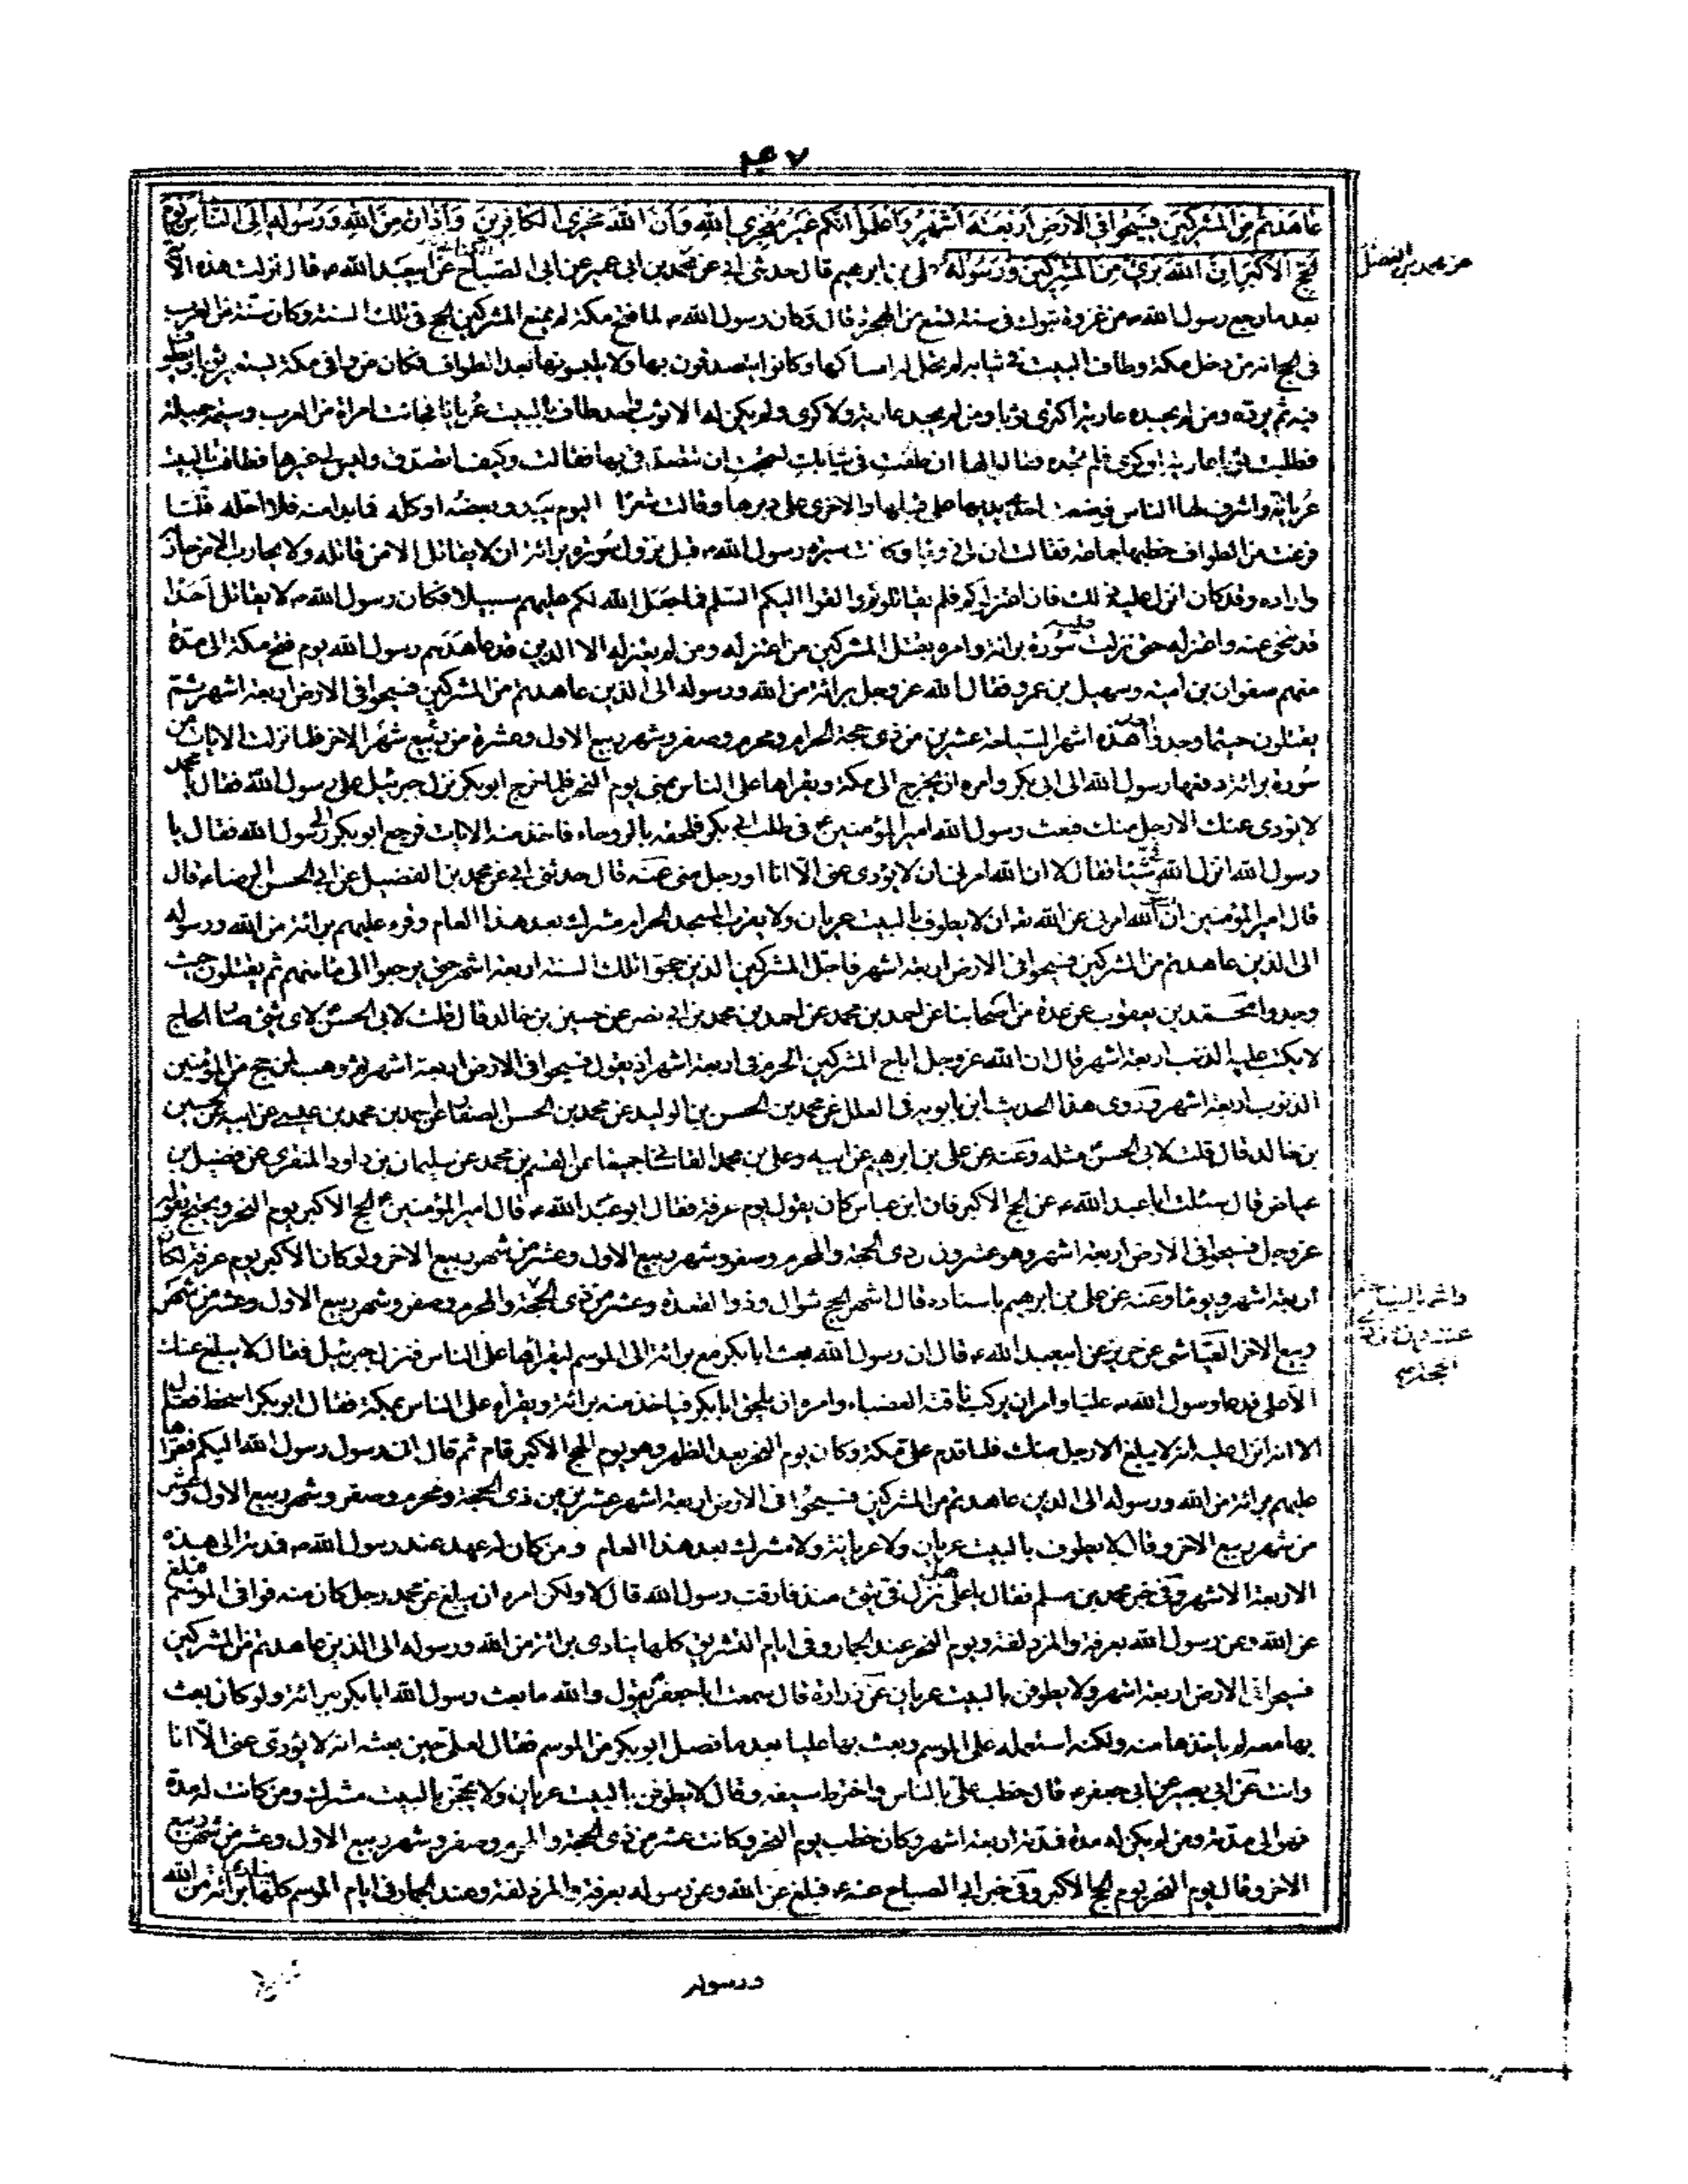 ۴۰۷
عاهدتم من المشركين فسيحوا في الارض اربعة اشهر واعلموا انكم غير معجزي الله وان الله مخزي الكافرين واذان من الله ورسوله الى الناس يوم
الحج الاكبر ان الله بريء من المشركين ورسوله علي بن ابرهيم قال حدثني ابي عن محمد بن ابي عمير عن ابي الصباح عن ابيعبد الله ع قال نزلت هذه الآية
عن محمد بن الفضل
بعد ما رجع رسول الله ص من غزوة تبوك في سنة تسع من الهجرة قال وكان رسول الله ص لما فتح مكة لم يمنع المشركين الحج في تلك السنة وكان سنة من العرب
في الحج انه من دخل مكة وطاف البيت في ثيابه لم يحل له امساكها وكانوا يتصدقون بها ولا يلبسونها بعد الطواف فكان من وافى مكة يستعير ثوبا ويطوف
فيه ثم يرده ومن لم يجد عارية اكترى ثيابا ومن لم يجد عارية ولا كرى ولم يكن له الا ثوب واحد طاف بالبيت عريانا فجائت امراة من العرب وسيمة جميلة
فطلبت ثوبا عارية او كرى فلم تجده فقالوا لها ان طفت في ثيابك احتجت ان تتصدقي بها فقالت وكيف اتصدق وليس لي غيرها فطافت بالبيت
عريانة واشرف لها الناس فوضعت احدى يديها على قبلها والاخرى على دبرها وقالت شعرا اليوم يبدو بعضه او كله فما بدا منه فلا احله فلما
فرغت من الطواف خطبها جماعة فقالت ان لي زوجا وكانت سيرة رسول الله ص قبل نزول سورة برائة ان لا يقاتل الا من قاتله ولا يحارب الا من حاربه
واراده وقد كان انزل عليه في ذلك فان اعتزلوكم فلم يقاتلوكم والقوا اليكم السلم فما جعل الله لكم عليهم سبيلا فكان رسول الله ص لا يقاتل احدا
قد تنحى عنه واعتزله حتى نزلت عليه سورة برائة وامره بقتل المشركين من اعتزله ومن لم يعتزله الا الذين قد عاهدهم رسول الله يوم فتح مكة الى مدة
منهم صفوان بن امية وسهيل بن عمرو فقال الله عز وجل برائة من الله ورسوله الى الذين عاهدتم من المشركين فسيحوا في الارض اربعة اشهر ثم
يقتلون حيثما وجدوا فهذه اشهر السياحة عشرين من ذي حجة الحرام ومحرم وصفر وشهر ربيع الاول وعشرة من ربيع شهر الاخر فلما نزلت الايات من
سورة برائة دفعها رسول الله الى ابي بكر وامره ان يخرج الى مكة ويقراها على الناس بمنى يوم النحر فلما خرج ابو بكر نزل جبرئيل على رسول الله فقال يا محمد
لا يؤدي عنك الا رجل منك فبعث رسول الله امير المؤمنين ع في طلب ابي بكر فلحقه بالروحاء فاخذ منه الايات فرجع ابو بكر الى رسول الله فقال يا
رسول الله انزل الله في شيئا فقال لا ان الله امرني ان لا يؤدي عني الا انا او رجل مني وعنه قال حدثني ابي عن محمد بن الفضيل عن ابي الحسن الرضا ع قال
قال امير المؤمنين ان رسول الله امرني عن الله تع ان لا يطوف بالبيت عريان ولا يقرب المسجد الحرام مشرك بعد هذا العام وقرء عليهم برائة من الله ورسوله
الى الذين عاهدتم من المشركين فسيحوا في الارض اربعة اشهر فاحل المشركين الذين حجوا تلك السنة اربعة اشهر حتى يرجعوا الى مامنهم ثم يقتلون حيث
وجدوا محمد بن يعقوب عن عدة من اصحابنا عن احمد بن محمد عن احمد بن محمد بن ابي نصر عن حسين بن خالد قال قلت لابي الحسن لاي شيء صار الحاج
لا يكتب عليه الذنب اربعة اشهر قال ان الله عز وجل اباح المشركين الحرم في اربعة اشهر اذ يقول فسيحوا في الارض اربعة اشهر ثم وهب لمن حج من المؤمنين
الذنوب اربعة اشهر وروى هذا الحديث ابن بابويه في العلل عن محمد بن الحسن بن الوليد عن محمد بن الحسن الصفار عن احمد بن محمد بن عيسى عن ابيه عن الحسين
بن خالد قال قلت لابي الحسن مثله وعنه عن علي بن ابرهيم عن ابيه وعلي بن محمد القاساني جميعا عن القسم بن محمد عن سليمان بن داود المنقري عن فضيل بن
عياض قال سئلت ابا عبد الله ع عن الحج الاكبر فان ابن عباس كان يقول يوم عرفة فقال ابو عبد الله ع قال امير المؤمنين ع الحج الاكبر يوم النحر ويحتج بقوله
عز وجل فسيحوا في الارض اربعة اشهر وهو عشرون من ذي الحجة والمحرم وصفر وشهر ربيع الاول وعشر من شهر ربيع الاخر ولو كان الاكبر يوم عرفة لكان
اربعة اشهر ويوما وعنه عن علي بن ابرهيم باسناده قال اشهر الحج شوال وذو القعدة وعشر من ذي الحجة والمحرم وصفر وشهر ربيع الاول وعشر من شهر
واشهر السياحة
عشرون من ذي
الحجة
ربيع الاخر العياشي عن حريز عن ابيعبد الله ع قال ان رسول الله بعث ابا بكر مع برائة الى الموسم ليقراها على الناس فنزل جبرئيل فقال لا يبلغ عنك
الا علي فدعا رسول الله ص عليا وامره ان يركب ناقته العضباء وامره ان يلحق ابا بكر فياخذ منه برائة ويقرأه على الناس بمكة فقال ابو بكر اسخط فقال
لا الا انه انزل عليه انه لا يبلغ الا رجل منك فلما قدم على مكة وكان يوم النحر بعد الظهر وهو يوم الحج الاكبر قام ثم قال اني رسول رسول الله اليكم فقراها
عليهم برائة من الله ورسوله الى الذين عاهدتم من المشركين فسيحوا في الارض اربعة اشهر عشرين من ذي الحجة ومحرم وصفر وشهر ربيع الاول وعشر
من شهر ربيع الاخر وقال لا يطوف بالبيت عريان ولا عريانة ولا مشرك بعد هذا العام ومن كان له عهد عند رسول الله ص فمدته الى هذه
الاربعة الاشهر وفي خبر محمد بن مسلم فقال يا علي هل نزل في شيء منذ فارقت رسول الله قال لا ولكن امره ان يبلغ عن محمد رجل كان منه فوافى الموسم فبلغ
عن الله وعن رسول الله بعرفة والمزدلفة ويوم النحر عند الجمار وفي ايام التشريق كلها ينادي برائة من الله ورسوله الى الذين عاهدتم من المشركين
فسيحوا في الارض اربعة اشهر ولا يطوفن بالبيت عريان عن زرارة قال سمعت ابا جعفر يقول والله ما بعث رسول الله ابا بكر ببرائة ولو كان بعث
بها معه لم ياخذها منه ولكنه استعمله على الموسم وبعث بها عليا بعد ما فصل ابو بكر من الموسم فقال لعلي حين بعثه انه لا يؤدي عني الا انا
وانت عن ابي بصير عن ابي جعفر ع قال خطب علي بالناس واخترط سيفه وقال لا يطوفن بالبيت عريان ولا يحجن بالبيت مشرك ومن كانت له مدة
فهو الى مدته ومن لم يكن له مدة فمدته اربعة اشهر وكان خطب يوم النحر وكانت عشر من ذي الحجة والمحرم وصفر وشهر ربيع الاول وعشر من شهر ربيع
الاخر وقال يوم النحر يوم الحج الاكبر وفي خبر ابي الصباح عنه ع فبلغ عن الله وعن رسوله بعرفة والمزدلفة وعند الجمار في ايام الموسم كلها ينادي برائة من الله
ورسوله